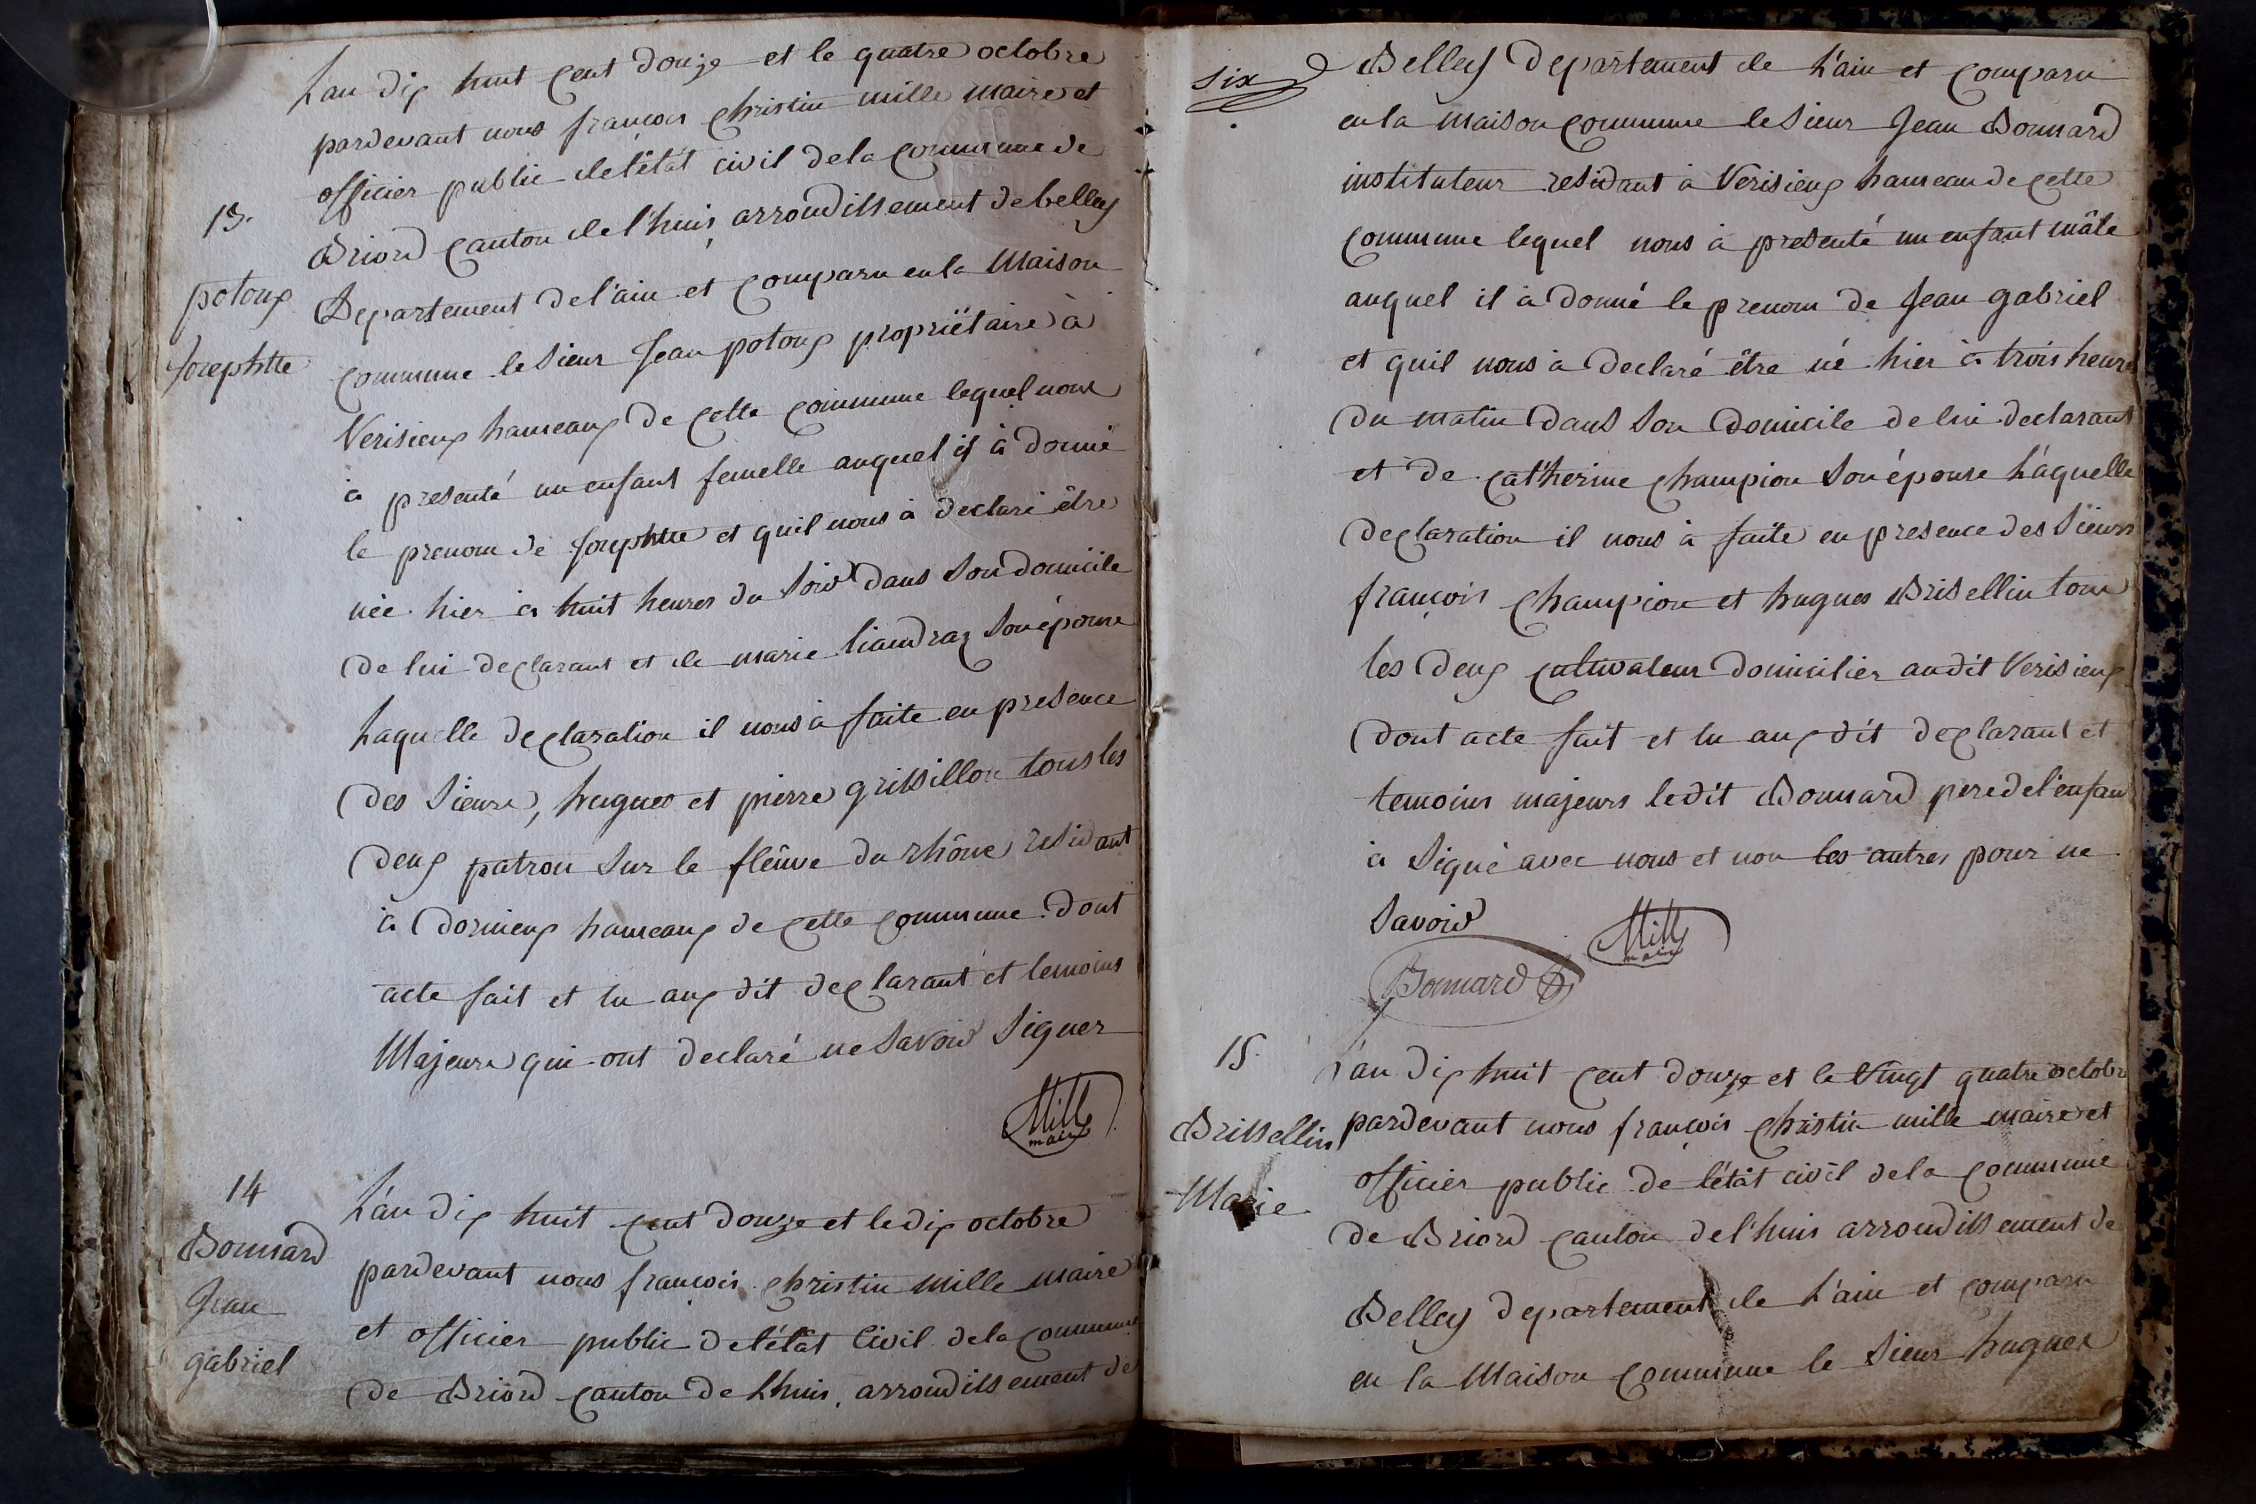 L'an dix huit cent douze et le quatre octobre
pardevant nous françois christin mille maire et
officier public de l'état civil de la commune de
13.
Briord canton de l'huis arrondissement de belley
potoux
Departement de l'ain et comparu en la Maison
Josephtte
commune le sieur Jean potoux propriëtaire à
Verisieux hameaux de cette commune lequel nous
à presenté un enfant femelle auquel il à donné
le prenom de Josephtte et quil nous à declaré être
née hier à huit heures du soir dans son domicile
de lui declarant et de marie liandraz son épouse
Laquelle declaration il nous à faite en presence
des sieurs, hugues et pierre grissillon tous les
deux patron sur le flêuve du rhône residant
à Dornieux hameaux de cette commune. Dont
acte fait et lu aux dit declarant et temoins
Majeurs qui ont declaré ne savoir signer
Mille
maire
14
L'an dix huit cent douze et le dix octobre
Bonnard
pardevant nous françois christin mille maire
Jean
et officier public de l'état Civil de la commune
gabriel
de Briord canton de Lhuis, arrondissement de
six
Belley Departement de L'ain et comparu
en la maison commune le sieur Jean Bonnard
instituteur residant à Verisieux hameau de cette
commune lequel nous à presenté un enfant mâle
auquel il à donné le prenom de Jean gabriel
et quil nous à declaré être né hier à trois heures
du matin dans son domicile de lui declarant
et de catherine champion son épouse Láquelle
declaration il nous à faite en presence des sieurs
françois champion et hugues Brisellin tous
les deux cultivateur domicilier au dit Verisieux
dont acte fait et lu aux dit declarant et
temoins majeurs ledit Bonnard pere de l'enfant
à signé avec nous et non les autres pour ne
savoir
Mille
maire
Bonnard
15.
L'an dix huit cent douze et le Vingt quatre octobre
Brissellin
pardevant nous françois christin mille maire et
officier public de l'état civil de la commune
Marie
de Briord canton de l'huis arrondissement de
Belley departement de L'ain et comparu
en la Maison commune le sieur hugues